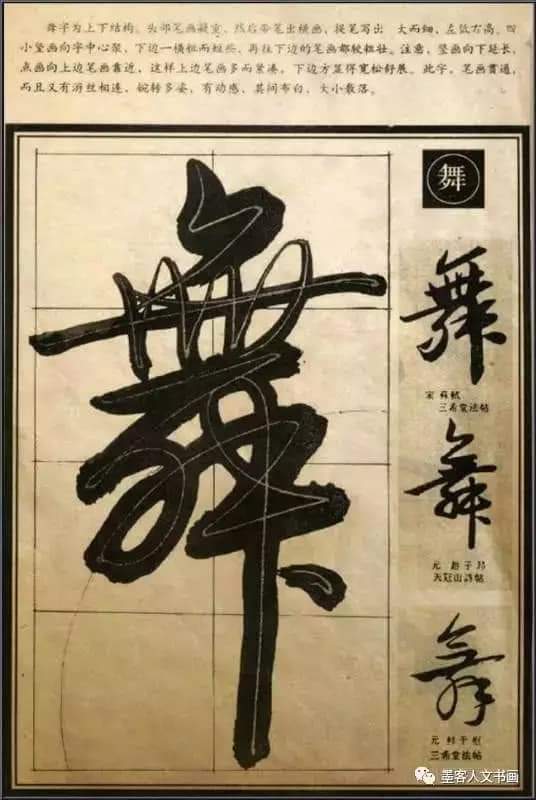 舞字为上下结构。头部笔画凝重，然后带笔出横画，提笔写出 大而细，左低右高。四
小竖画向字中心聚，下边一横粗而短些，再往下边的笔画都较粗壮。注意，竖画向下延长，
点画向上边笔画靠近，这样上边笔画多而紧凑，下边方显得宽松舒展。此字，笔画贯通，
而且又有游丝相连，婉转多姿，有动感，其间布白，大小散落。
舞
舞
舞
宋 苏轼
三希堂法帖
舞
元 赵子昂
天冠山诗帖
舞
元 鲜于枢
三希堂法帖
墨客人文书画